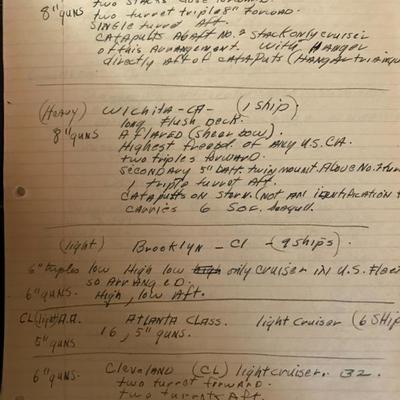 two stacks close forward.
8" guns two turret triple 8" forward.
single turret Aft.
catapults Abaft No. 2 stack only cruiser
of this arrangement. With Hanger
directly aft of catapults
(Heavy) Wichita - CA - (1 ship)
long flush deck.
8" guns A flared (sheer bow).
Highest freebd. of any U.S. CA.
two triples forward.
secondary 5" batt. twin mount. Above No. 2 turret
1 triple turret Aft.
catapults on stern. (Not an identification
carries 6 SOC. Seagull.
(light) Brooklyn - Cl - (9 ships).
6" triples low High low only cruiser in U.S. Fleet
so arranged.
6" guns. High, low Aft.
CL (light) A.A. Atlanta Class. light cruiser (6 ship
5" guns 16, 5" guns.
6" guns. Cleveland (CL) light cruiser. 32.
two turret forward.
two turrets Aft.